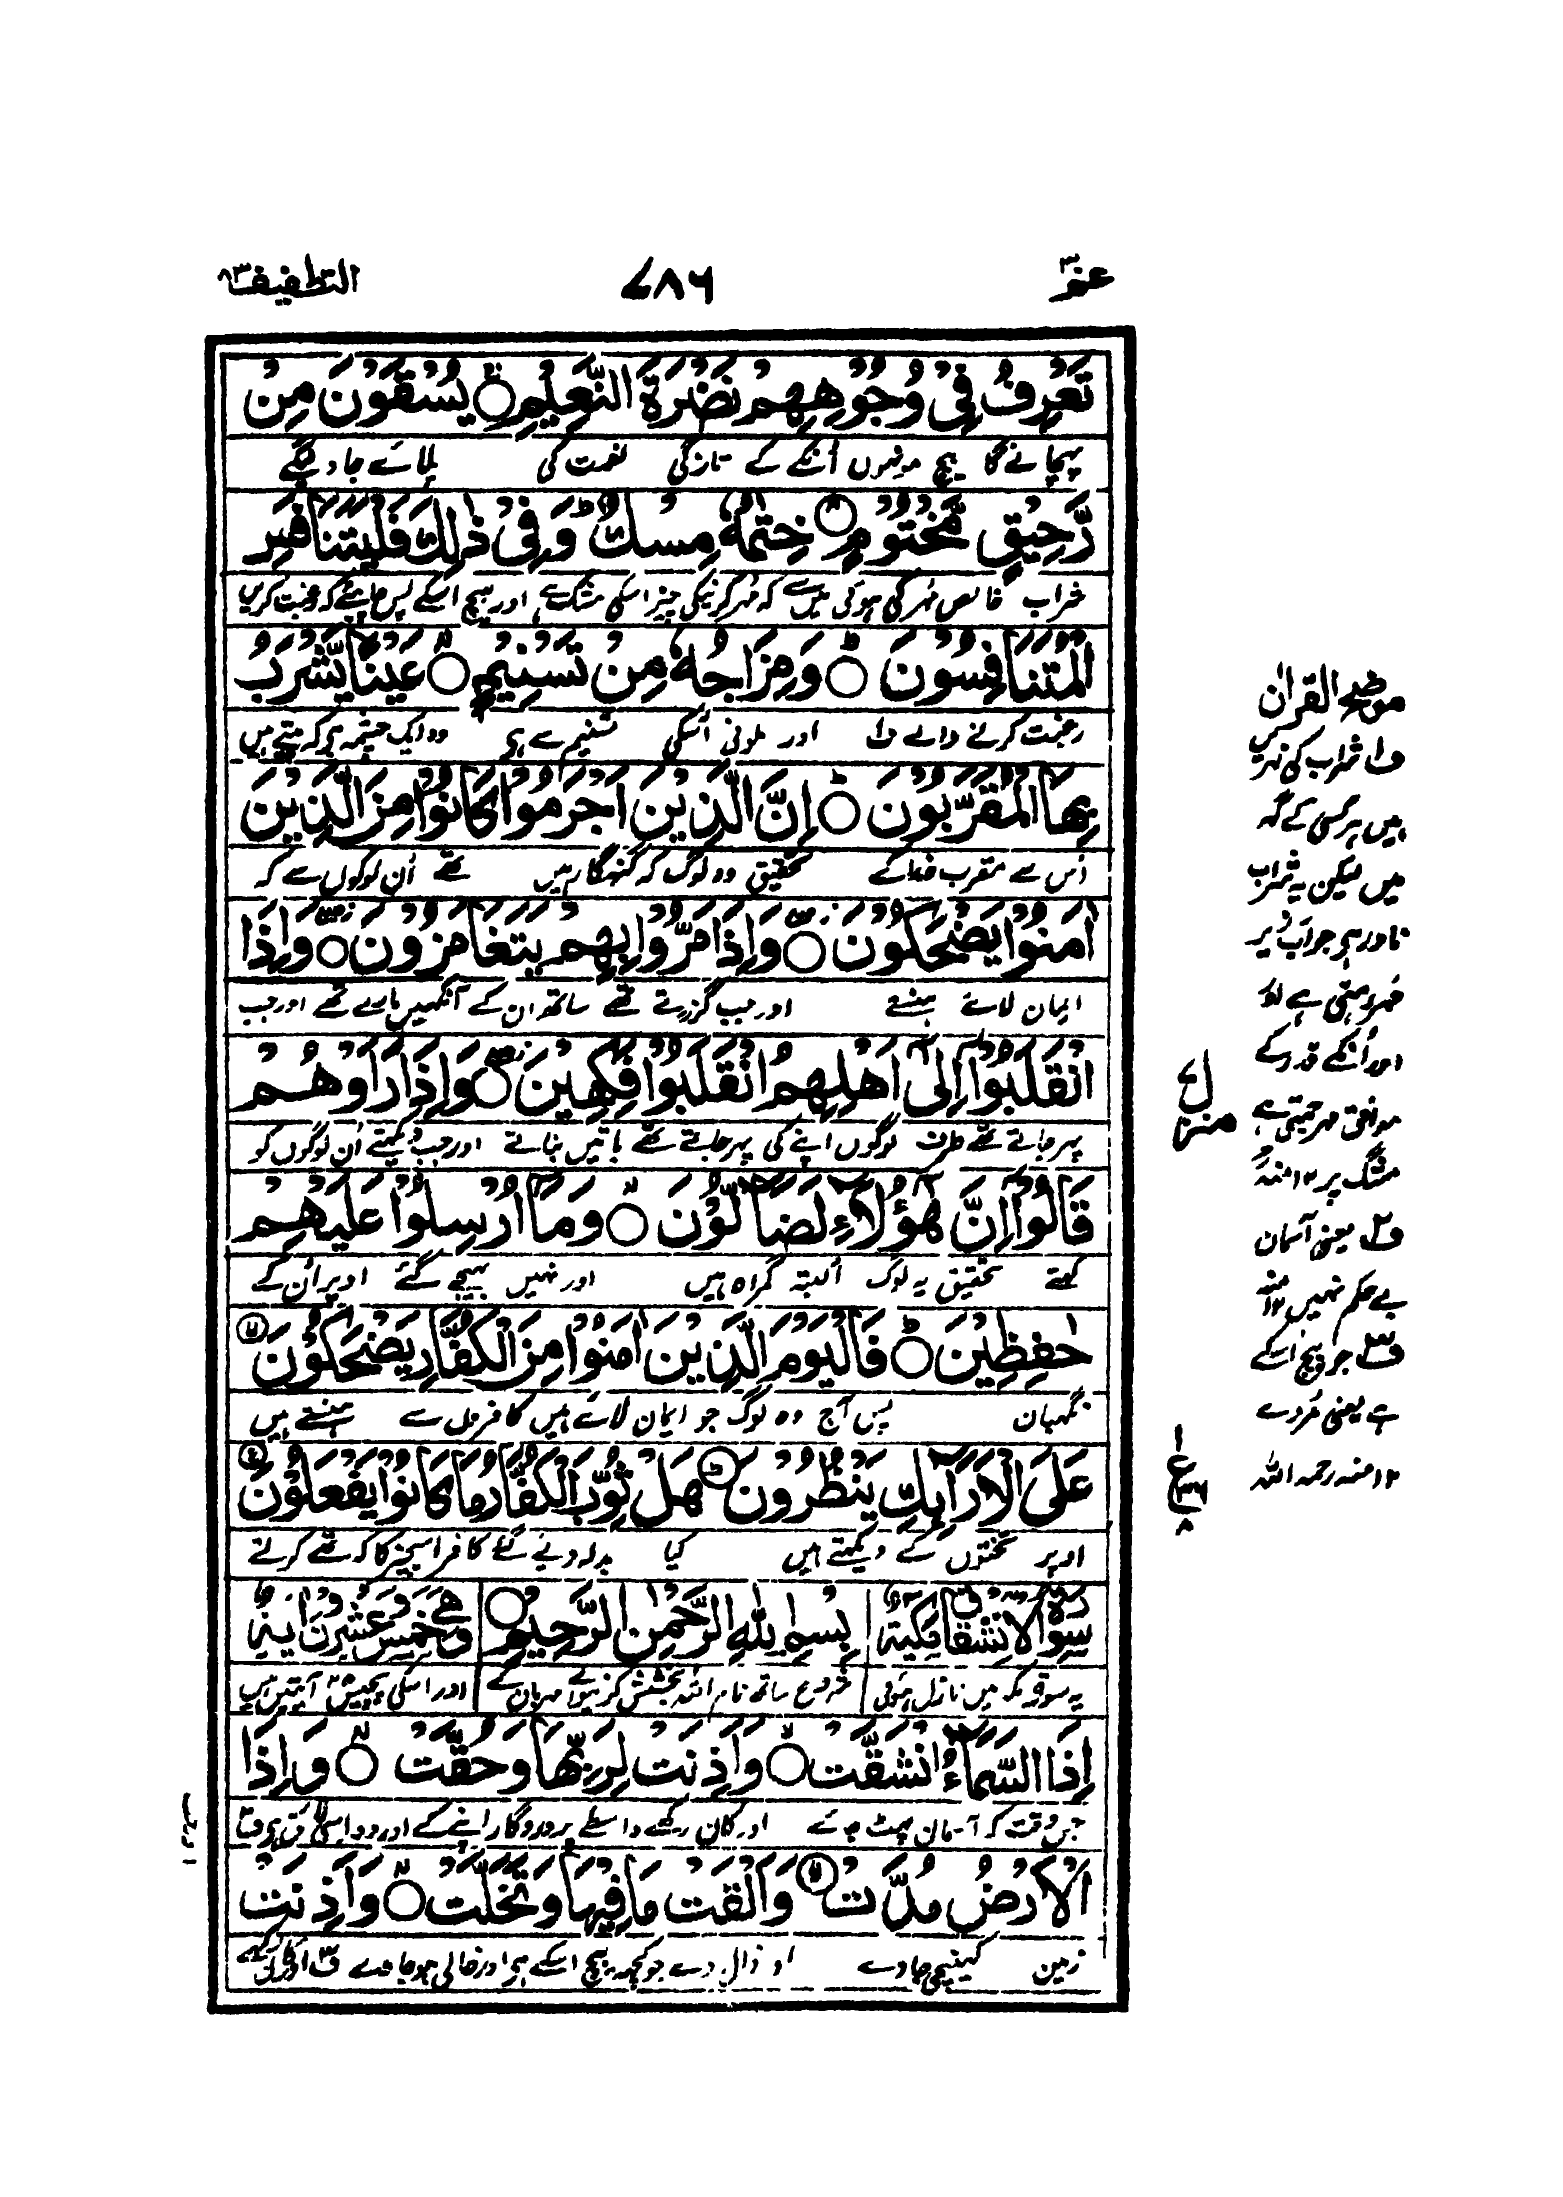 عم۳۰
۷۸۶
التطفيف۸۳
تَعْرِفُ فِيْ وُجُوْهِهِمْ نَضْرَةَ النَّعِيْمِ ○ يُسْقَوْنَ مِنْ
پہچانے گا بیچ مونہوں اُنکے کے تازگی نعمت کی پلائے جاوینگے
رَّحِيْقٍ مَّخْتُوْمٍ ○ خِتٰمُهٗ مِسْكٌ ؕ وَفِيْ ذٰلِكَ فَلْيَتَنَافَسِ
شراب خالص مُہر کی ہوئی میں سے کہ مُہر کرنیکی چیز اسکی مشک ہے اور بیچ اسکے پس چاہیئے کہ رغبت کریں
الْمُتَنَافِسُوْنَ ○ؕ وَمِزَاجُهٗ مِنْ تَسْنِيْمٍ ○ عَيْنًا يَّشْرَبُ
رغبت کرنے والے ف۱ اور ملونی اُسکی تسنیم سے ہی وہ ایک چشمہ ہی کہ پیتے ہیں
بِهَا الْمُقَرَّبُوْنَ ○ؕ اِنَّ الَّذِيْنَ اَجْرَمُوْا كَانُوْا مِنَ الَّذِيْنَ
اُس سے مقرب خدا کے تحقیق وہ لوگ کہ گنہگار ہیں تھے اُن لوگوں سے کہ
اٰمَنُوْا يَضْحَكُوْنَ ○ وَاِذَا مَرُّوْا بِهِمْ يَتَغَامَزُوْنَ ○ وَاِذَا
ایمان لائے ہنستے اور جب گزرتے تھے ساتھ ان کے آنکھیں مارتے تھے اور جب
انْقَلَبُوْۤا اِلٰۤى اَهْلِهِمُ انْقَلَبُوْا فَكِهِيْنَ ○ وَاِذَا رَاَوْهُمْ
پھر جاتے تھے طرف لوگوں اپنے کی پھر جاتے تھے باتیں بناتے اور جب دیکھتے اُن لوگوں کو
قَالُوْۤا اِنَّ هٰۤؤُلَآءِ لَضَآلُّوْنَ ○ وَمَاۤ اُرْسِلُوْا عَلَيْهِمْ
کہتے تحقیق یہ لوگ البتہ گمراہ ہیں اور نہیں بھیجے گئے اوپر اُن کے
حٰفِظِيْنَ ○ؕ فَالْيَوْمَ الَّذِيْنَ اٰمَنُوْا مِنَ الْكُفَّارِ يَضْحَكُوْنَ ○
نگہبان پس آج وہ لوگ جو ایمان لائے ہیں کافروں سے ہنستے ہیں
عَلَى الْاَرَآئِكِ يَنْظُرُوْنَ ○ؕ هَلْ ثُوِّبَ الْكُفَّارُ مَا كَانُوْا يَفْعَلُوْنَ ○
اوپر تختوں کے دیکھتے ہیں کیا بدلہ دیئے گئے کافر اسچیز کا کہ تھے کرتے
سُوْرَةُ الْاِنْشِقَاقِ مَكِّيَّةٌ بِسْمِ اللّٰهِ الرَّحْمٰنِ الرَّحِيْمِ ○ وَهِيَ خَمْسٌ وَّعِشْرُوْنَ اٰيَةً
یہ سورۃ مکہ میں نازل ہوئی شروع ساتھ نام اللہ بخشش کرنیوالے مہربان کے اور اسکی پچیس۲۵ آیتیں ہیں
اِذَا السَّمَآءُ انْشَقَّتْ ○ وَاَذِنَتْ لِرَبِّهَا وَحُقَّتْ ○ وَاِذَا
جس وقت کہ آسمان پھٹ جائے اور کان رکھے واسطے پروردگار اپنے کے اور وہ اسی لائق ہی ف۲
الْاَرْضُ مُدَّتْ ○ وَاَلْقَتْ مَا فِيْهَا وَتَخَلَّتْ ○ وَاَذِنَتْ
زمین کھینچی جاوے اور ڈال دے جو کچھ بیچ اسکے ہی اور خالی ہو جاوے ف۳ اور کان رکھے
موضح القرآن
ف۱ شراب کی نہریں
ہیں ہر کسی کے گھر
میں لیکن یہ شراب
نادر ہی جو اب پر
مُہر رہتی ہے
اور اُنکے قدر کے
موافق مہر جمتی ہے
مشک پر ۱۲ منہ
ف۲ یعنی آسمان
بے حکم نہیں ۱۲ منہ
ف۳ جو بیچ اسکے
ہے یعنی مُردے
۱۲ منہ رحمہ اللہ
منزل۷
۱
ع
۳۶
۸